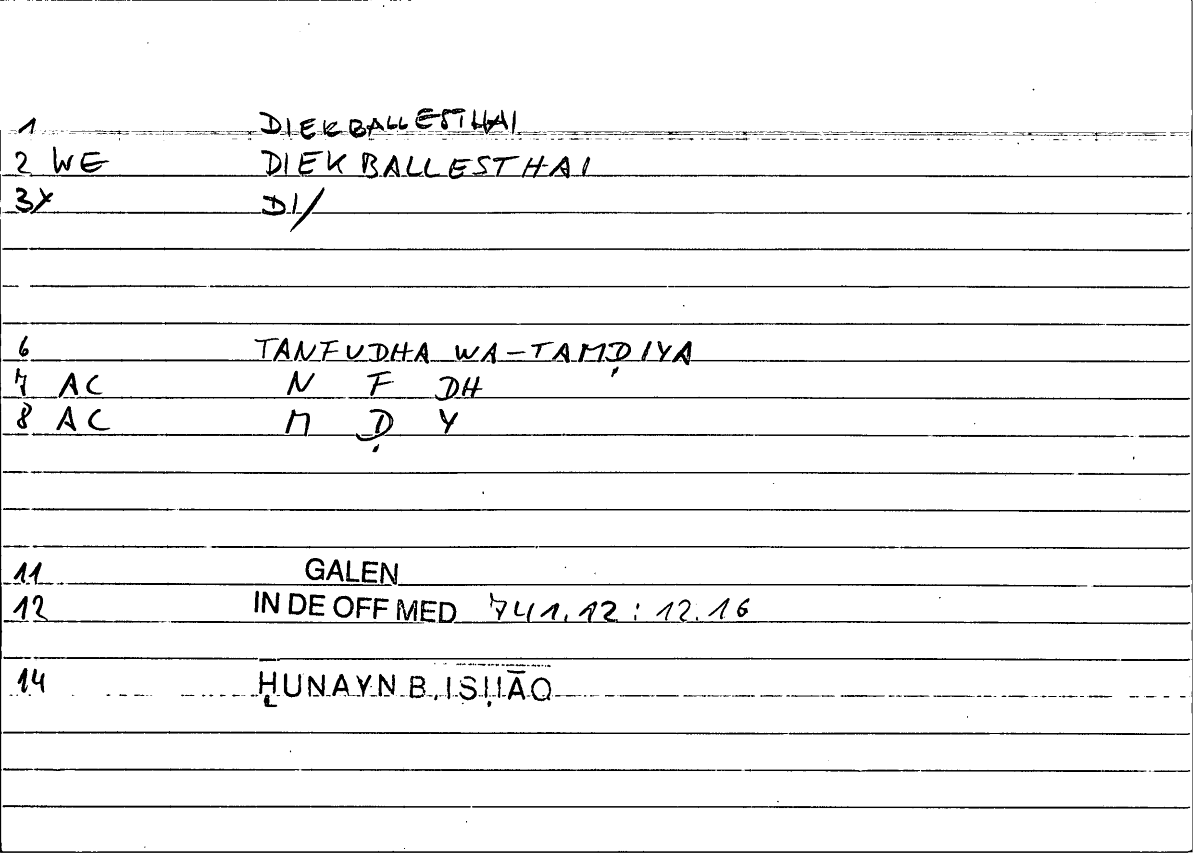 1 DIEKBALLESTHAI
2 WE DIEKBALLESTHAI
3X DI/
6 TANFUDHA WA-TAMḌIYA
7 AC N F DH
8 AC M Ḍ Y
11 GALEN
12 IN DE OFF MED 741,12 : 12.16
14 ḤUNAYN B. ISḤĀQ